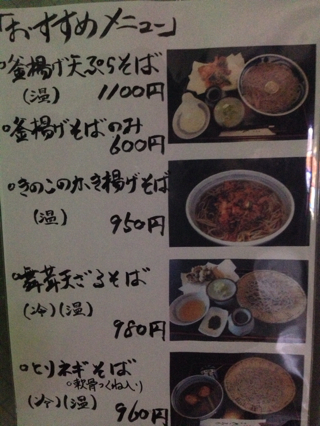 「おすすめメニュー」
○釜揚げ天ぷらそば
(温) 1100円
○釜揚げそばのみ
600円
○きのこのかき揚げそば
(温) 950円
○舞茸天ざるそば
(冷)(温)
980円
○とりネギそば
○軟骨つくね入り)
(冷)(温) 960円